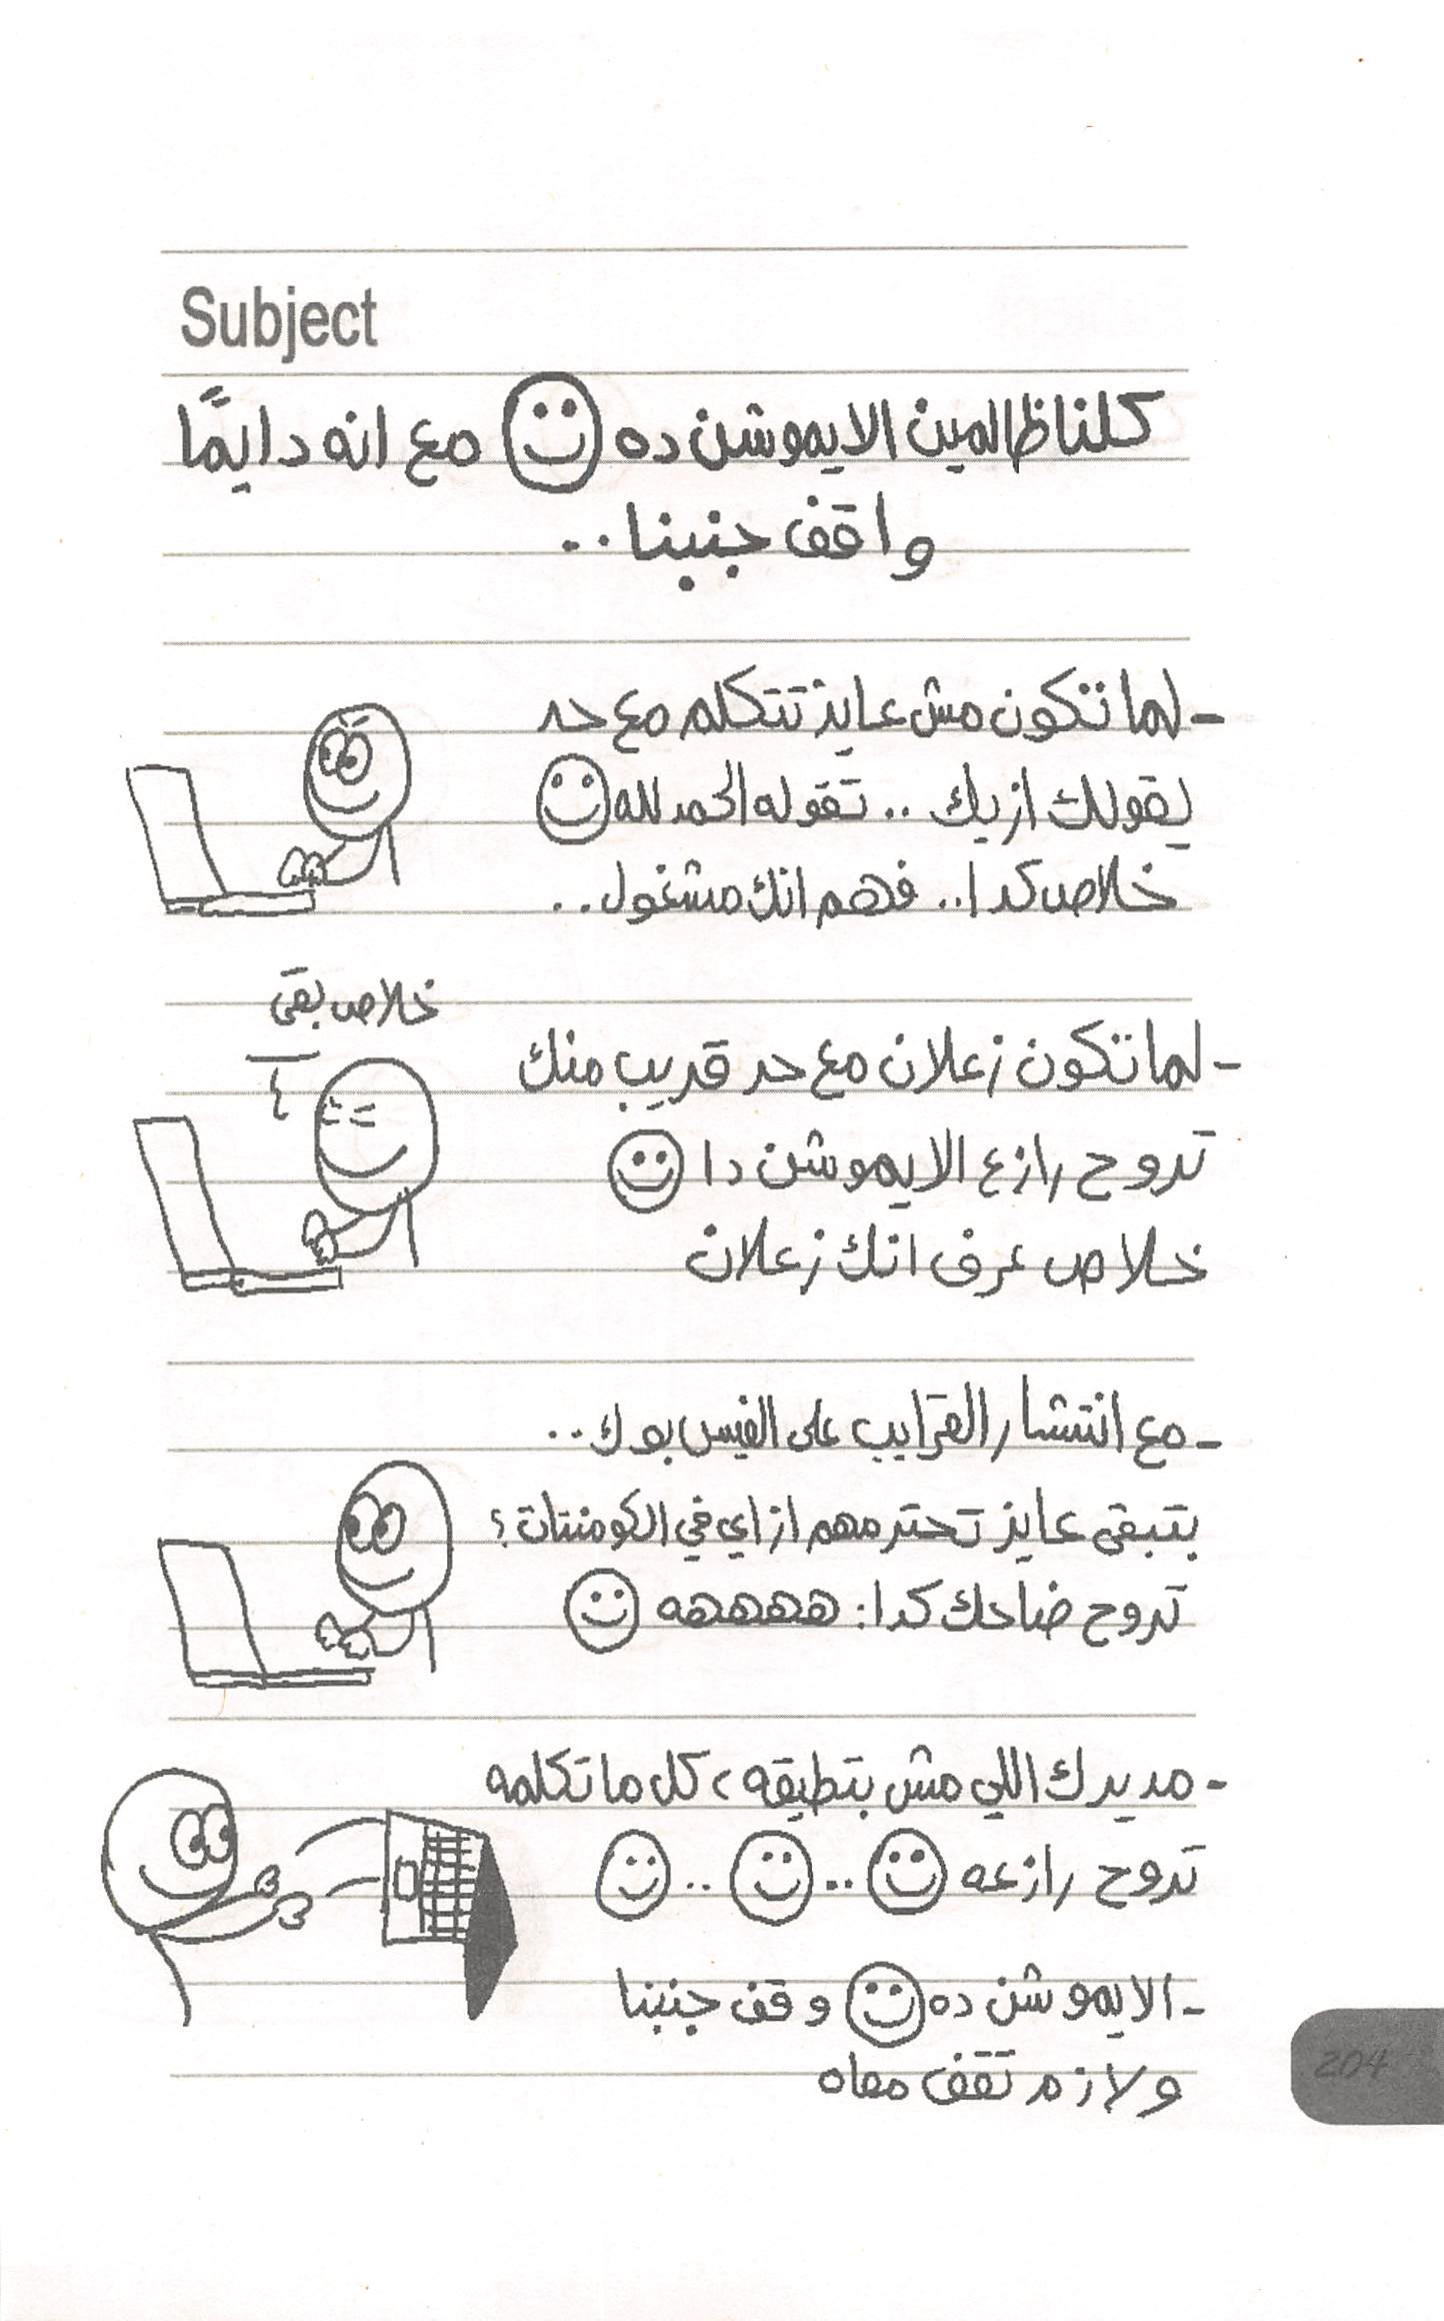 Subject
كلنا ظالمين الايموشن ده 🙂 مع انه دايمًا
واقف جنبنا..
- لما تكون مش عايز تتكلم مع حد
يقولك ازيك .. تقوله الحمد لله 🙂
خلاص كدا.. فهم انك مشغول..
خلاص بقى
- لما تكون زعلان مع حد قريب منك
تروح رازع الايموشن دا 🙂
خلاص عرف انك زعلان
- مع انتشار القرايب على الفيس بوك..
بتبقى عايز تحترمهم ازاي في الكومنتات؟
تروح ضاحك كدا: ههههه 🙂
- مديرك اللي مش بتطيقه، كل ما تكلمه
تروح رازعه 🙂..🙂..🙂
- الايموشن ده 🙂 وقف جنبنا
ولازم تقف معاه
204